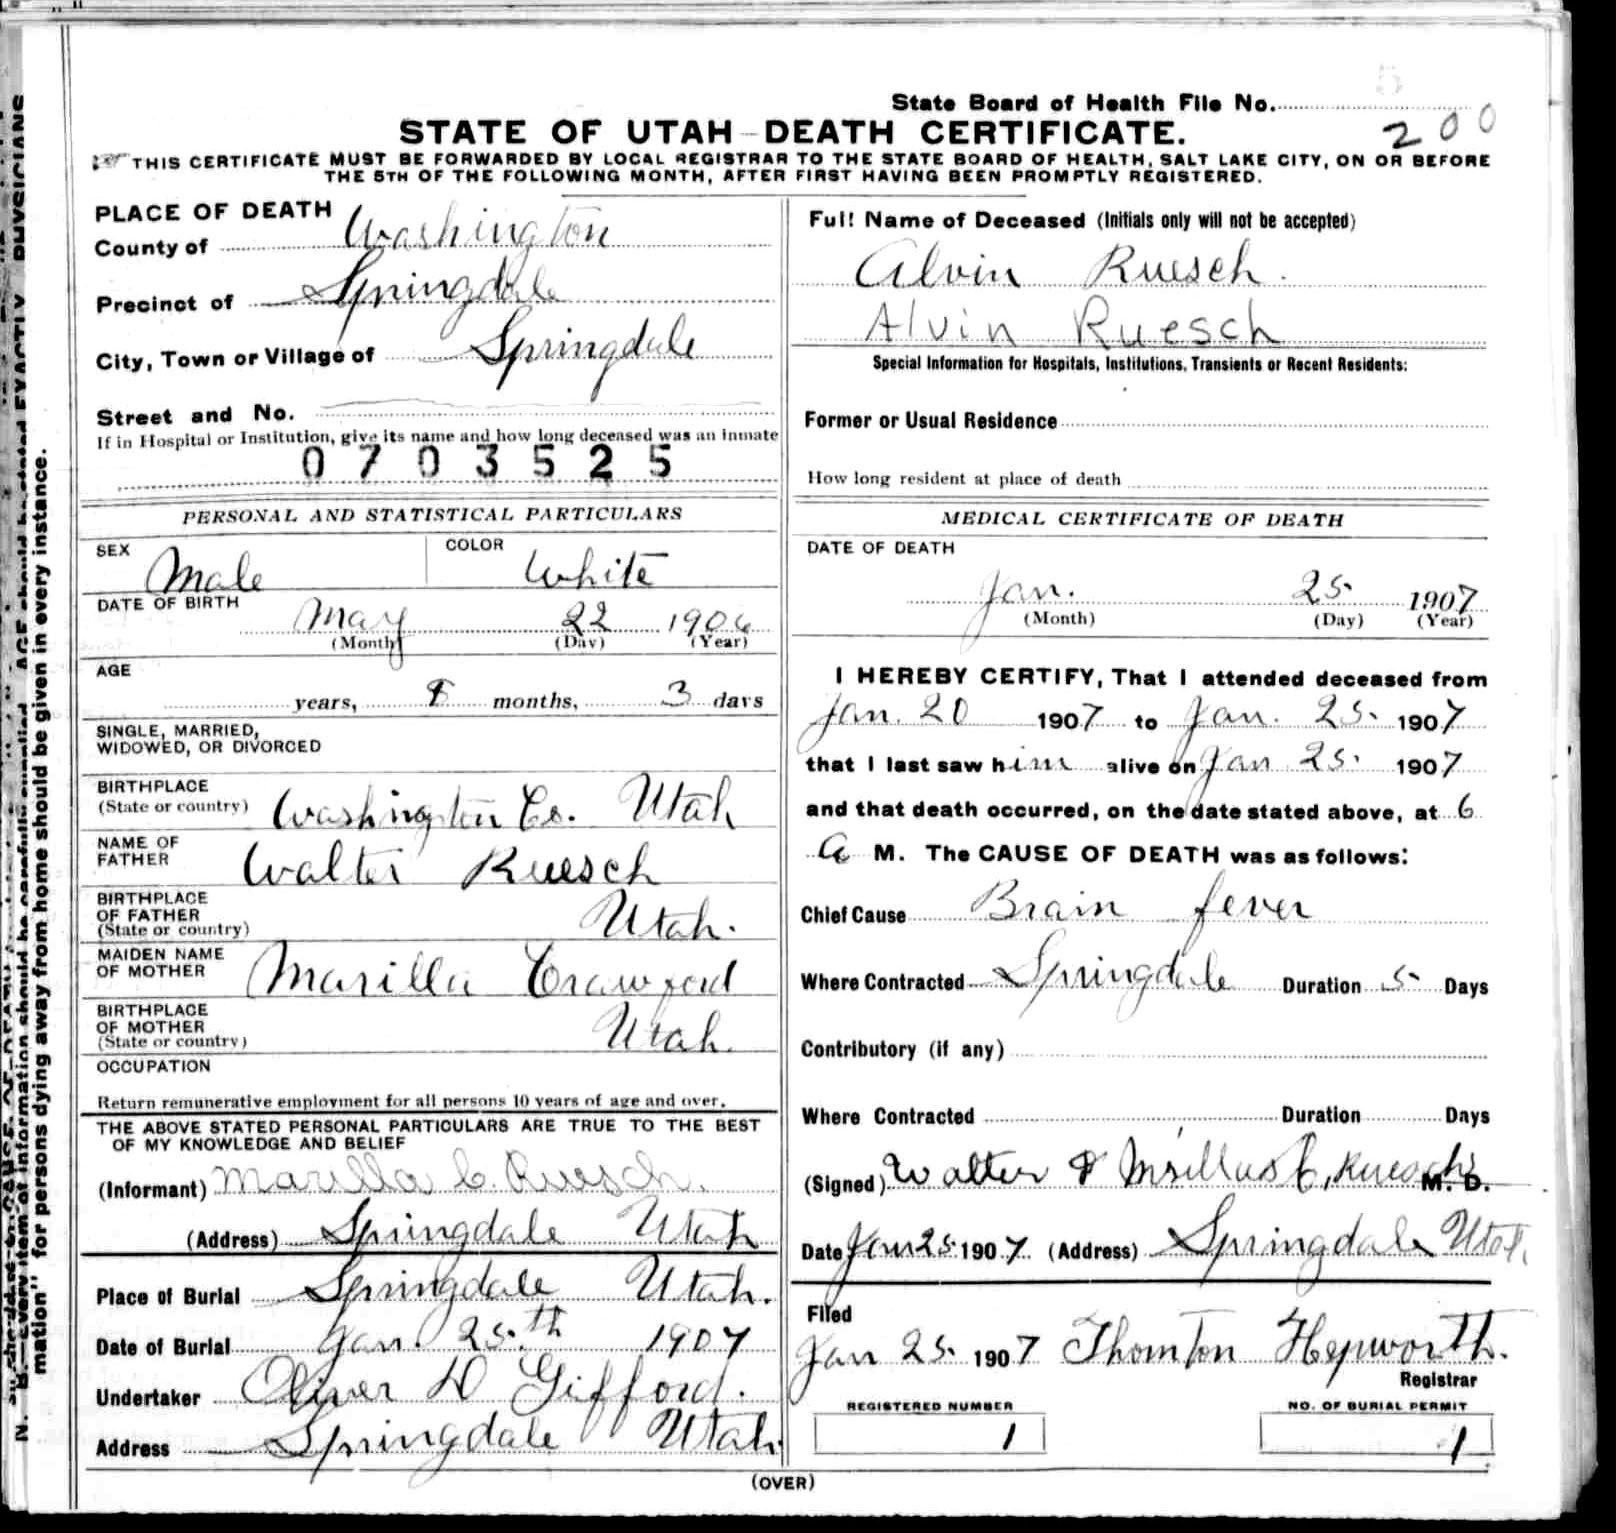 State Board of Health File No.
200
STATE OF UTAH DEATH CERTIFICATE.
THIS CERTIFICATE MUST BE FORWARDED BY LOCAL REGISTRAR TO THE STATE BOARD OF HEALTH, SALT LAKE CITY, ON OR BEFORE
THE 5TH OF THE FOLLOWING MONTH, AFTER FIRST HAVING BEEN PROMPTLY REGISTERED.
PLACE OF DEATH
County of Washington
Precinct of Springdale
City, Town or Village of Springdale
Street and No.
If in Hospital or Institution, give its name and how long deceased was an inmate
0703525
PERSONAL AND STATISTICAL PARTICULARS
SEX Male COLOR White
DATE OF BIRTH
May 22 1906
(Month) (Day) (Year)
AGE
years, 8 months, 3 days
SINGLE, MARRIED,
WIDOWED, OR DIVORCED
BIRTHPLACE
(State or country) Washington Co. Utah
NAME OF
FATHER Walter Ruesch
BIRTHPLACE
OF FATHER
(State or country) Utah.
MAIDEN NAME
OF MOTHER Marilla Crawford
BIRTHPLACE
OF MOTHER
(State or country) Utah.
OCCUPATION
Return remunerative employment for all persons 10 years of age and over.
THE ABOVE STATED PERSONAL PARTICULARS ARE TRUE TO THE BEST
OF MY KNOWLEDGE AND BELIEF
(Informant) Marilla C. Ruesch.
(Address) Springdale Utah
Place of Burial Springdale Utah.
Date of Burial Jan. 25th 1907
Undertaker Oliver D Gifford.
Address Springdale Utah
Full Name of Deceased (Initials only will not be accepted)
Alvin Ruesch.
Alvin Ruesch
Special Information for Hospitals, Institutions, Transients or Recent Residents:
Former or Usual Residence
How long resident at place of death
MEDICAL CERTIFICATE OF DEATH
DATE OF DEATH
Jan. 25. 1907
(Month) (Day) (Year)
I HEREBY CERTIFY, That I attended deceased from
Jan. 20 1907 to Jan. 25. 1907
that I last saw him alive on Jan 25. 1907
and that death occurred, on the date stated above, at 6
a M. The CAUSE OF DEATH was as follows:
Chief Cause Brain fever
Where Contracted Springdale Duration 5 Days
Contributory (if any)
Where Contracted Duration Days
(Signed) Walter & C. Ruesch M. D.
Date Jan 25. 1907 (Address) Springdale Utah.
Filed
Jan 25. 1907 Thornton Hepworth.
Registrar
REGISTERED NUMBER
1
NO. OF BURIAL PERMIT
1
(OVER)
mation" for persons dying away from home should be given in every instance.